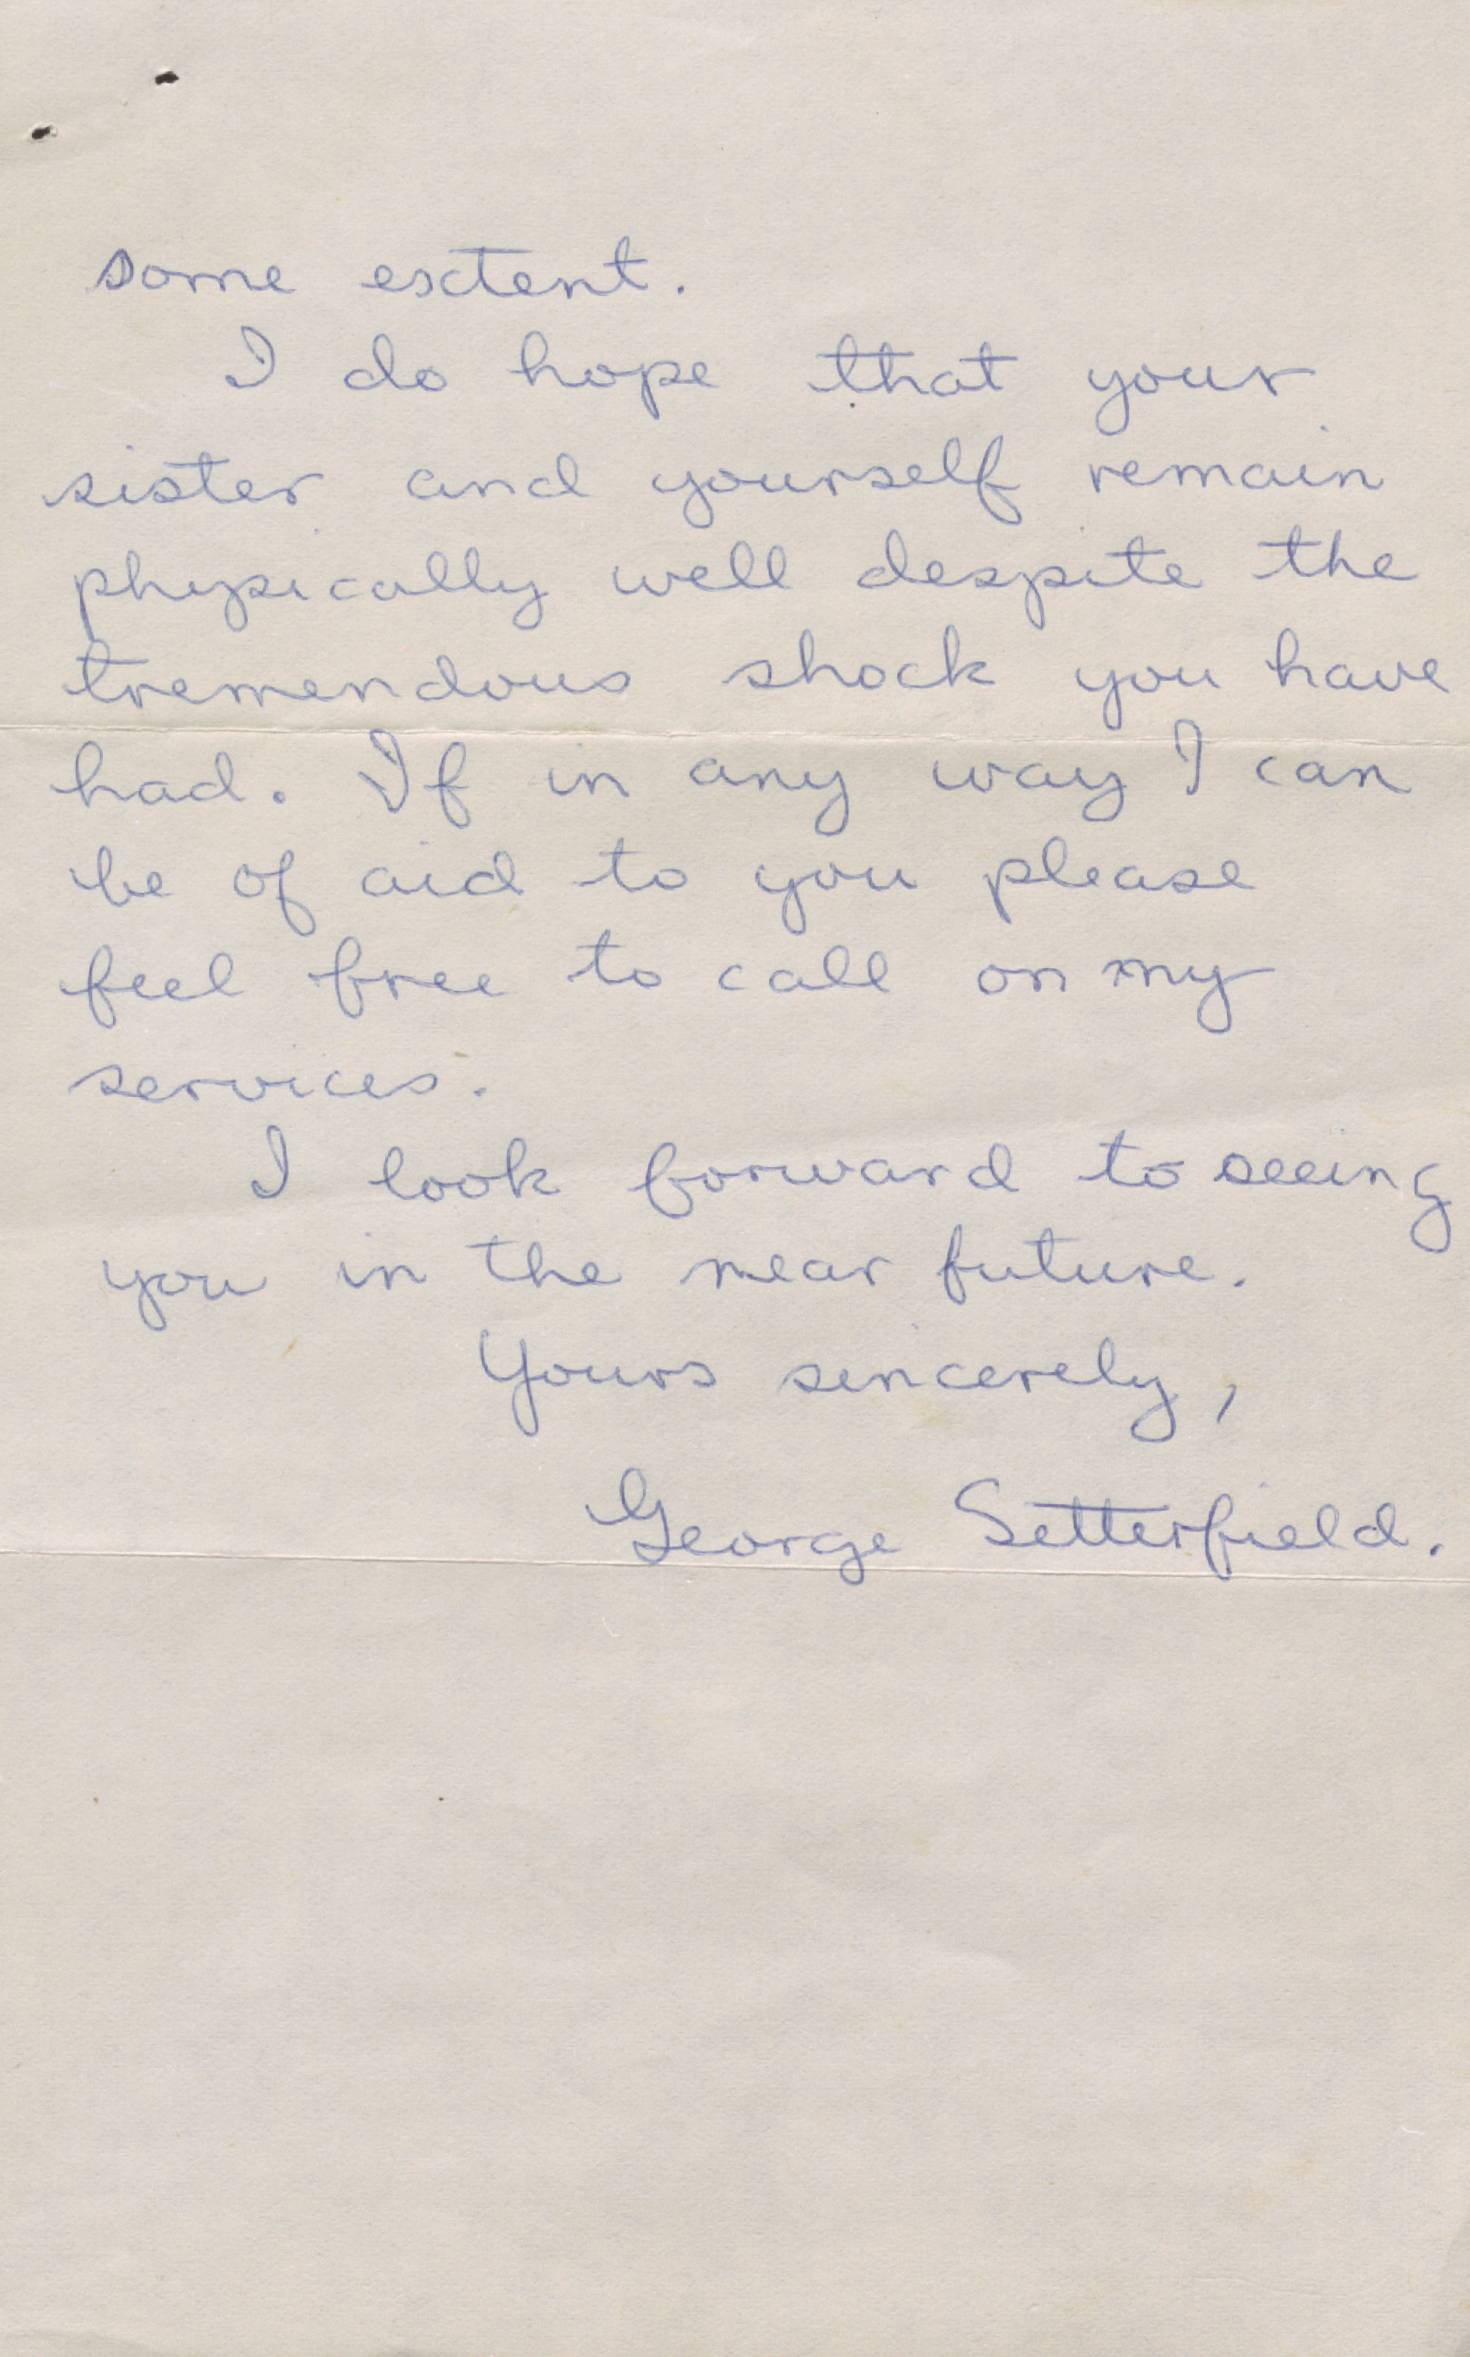 some extent.
I do hope that your
sister and yourself remain
physically well despite the
tremendous shock you have
had. If in any way I can
be of aid to you please
feel free to call on my
services.
I look forward to seeing
you in the near future.
Yours sincerely,
George Setterfield.